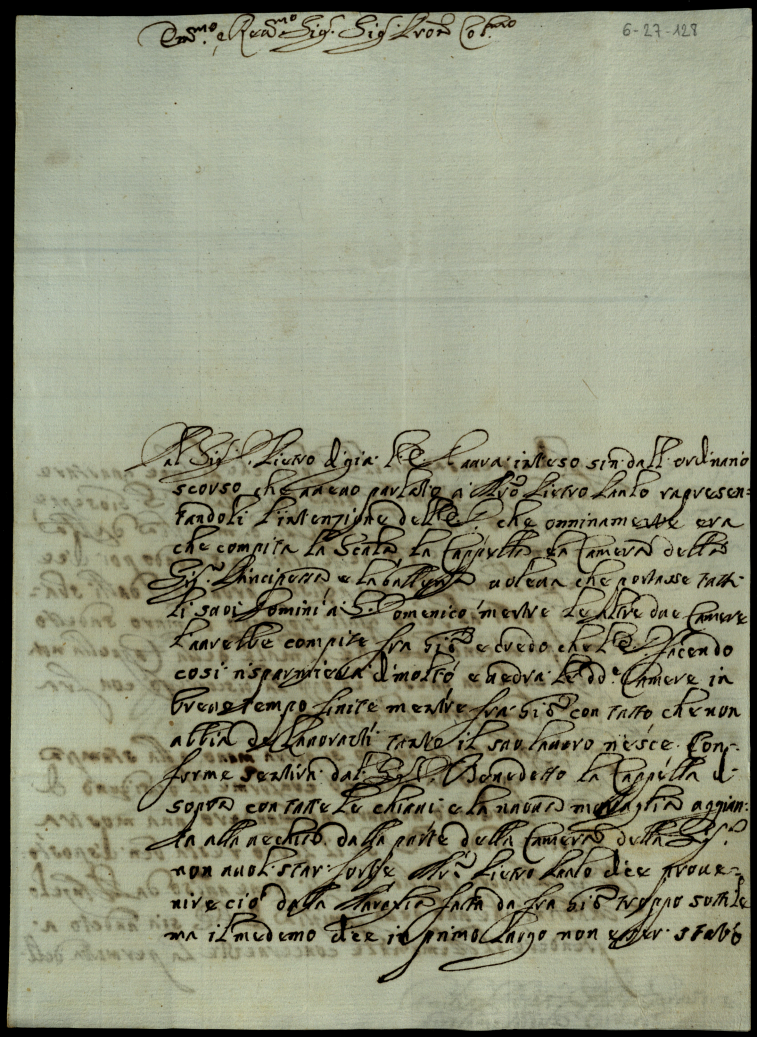 Em.mo e Re.mo Sig.r Sig.r Pron Col.mo
6-27-128
Al Sig.r Pietro di già V.E. haurà inteso sin dall'ordinario
scorso che aueuo parlato a Mro Pietro Paolo rapresen=
tandoli l'intenzione dell'E.V. che onninamente era
che compita la Scala la Cappella, la Camera della
Sig.ra Principessa e la uoleua che portasse tutti
li suoi homini a S. Domenico, mentre le altre due Camere
l'haurebbe compite fra Gio e credo che V.E. facendo
così risparmierà di molto, e uedrà le dd.e Camere in
breue tempo finite mentre fra Gio con tutto che non
abbia del tanto il suo lauoro riesce. Con=
forme sentirà dal Sig.r Benedetto la Cappella di
sopra con tutte le chiaui e la nuoua muraglia aggiun=
ta alla uechia dalla parte della Camera della Sig.ra
non uuol star forte Mro Pietro Paolo dice proue=
nire ciò dalla Muraglia fatta da fra Gio troppo sottile
ma il medemo dice in primo luogo non esser stato